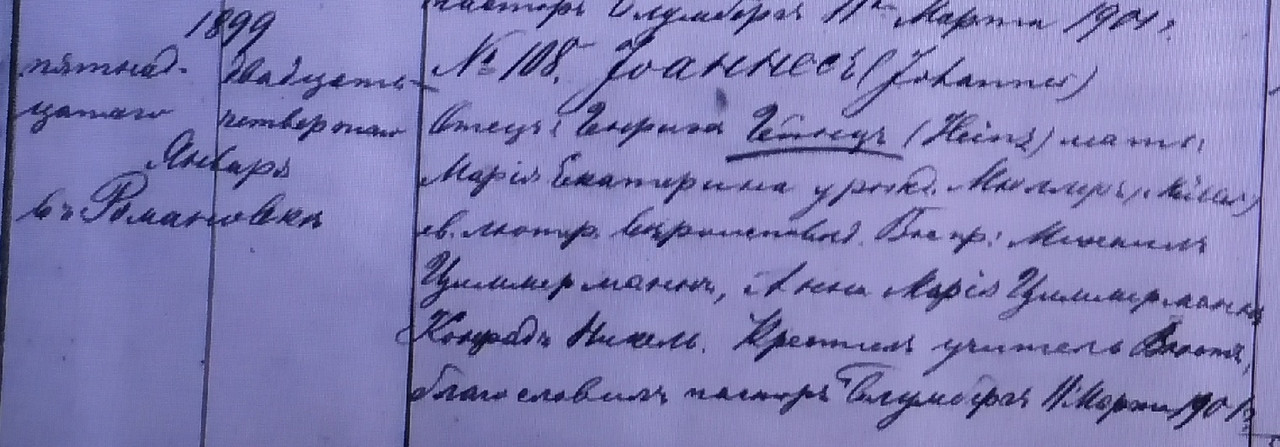 пасторъ Блумбергъ 11го Марта 1901 г.
1899
пятнад- двадцать
цатаго четвертаго
Января
въ Романовкѣ
№ 108. Іоаннесъ (Johannes)
Отецъ: Генрихъ Гейнцъ (Heinz) мать:
Марія Екатерина урожд. Мюллеръ (Müller)
ев. лютер. вѣроисповѣд. Воспр: Михаилъ
Циммерманнъ, Анна Марія Циммерманнъ
Конрадъ Никель. Крестилъ учитель
благословилъ пасторъ Блумбергъ 11 Марта 1901 г.